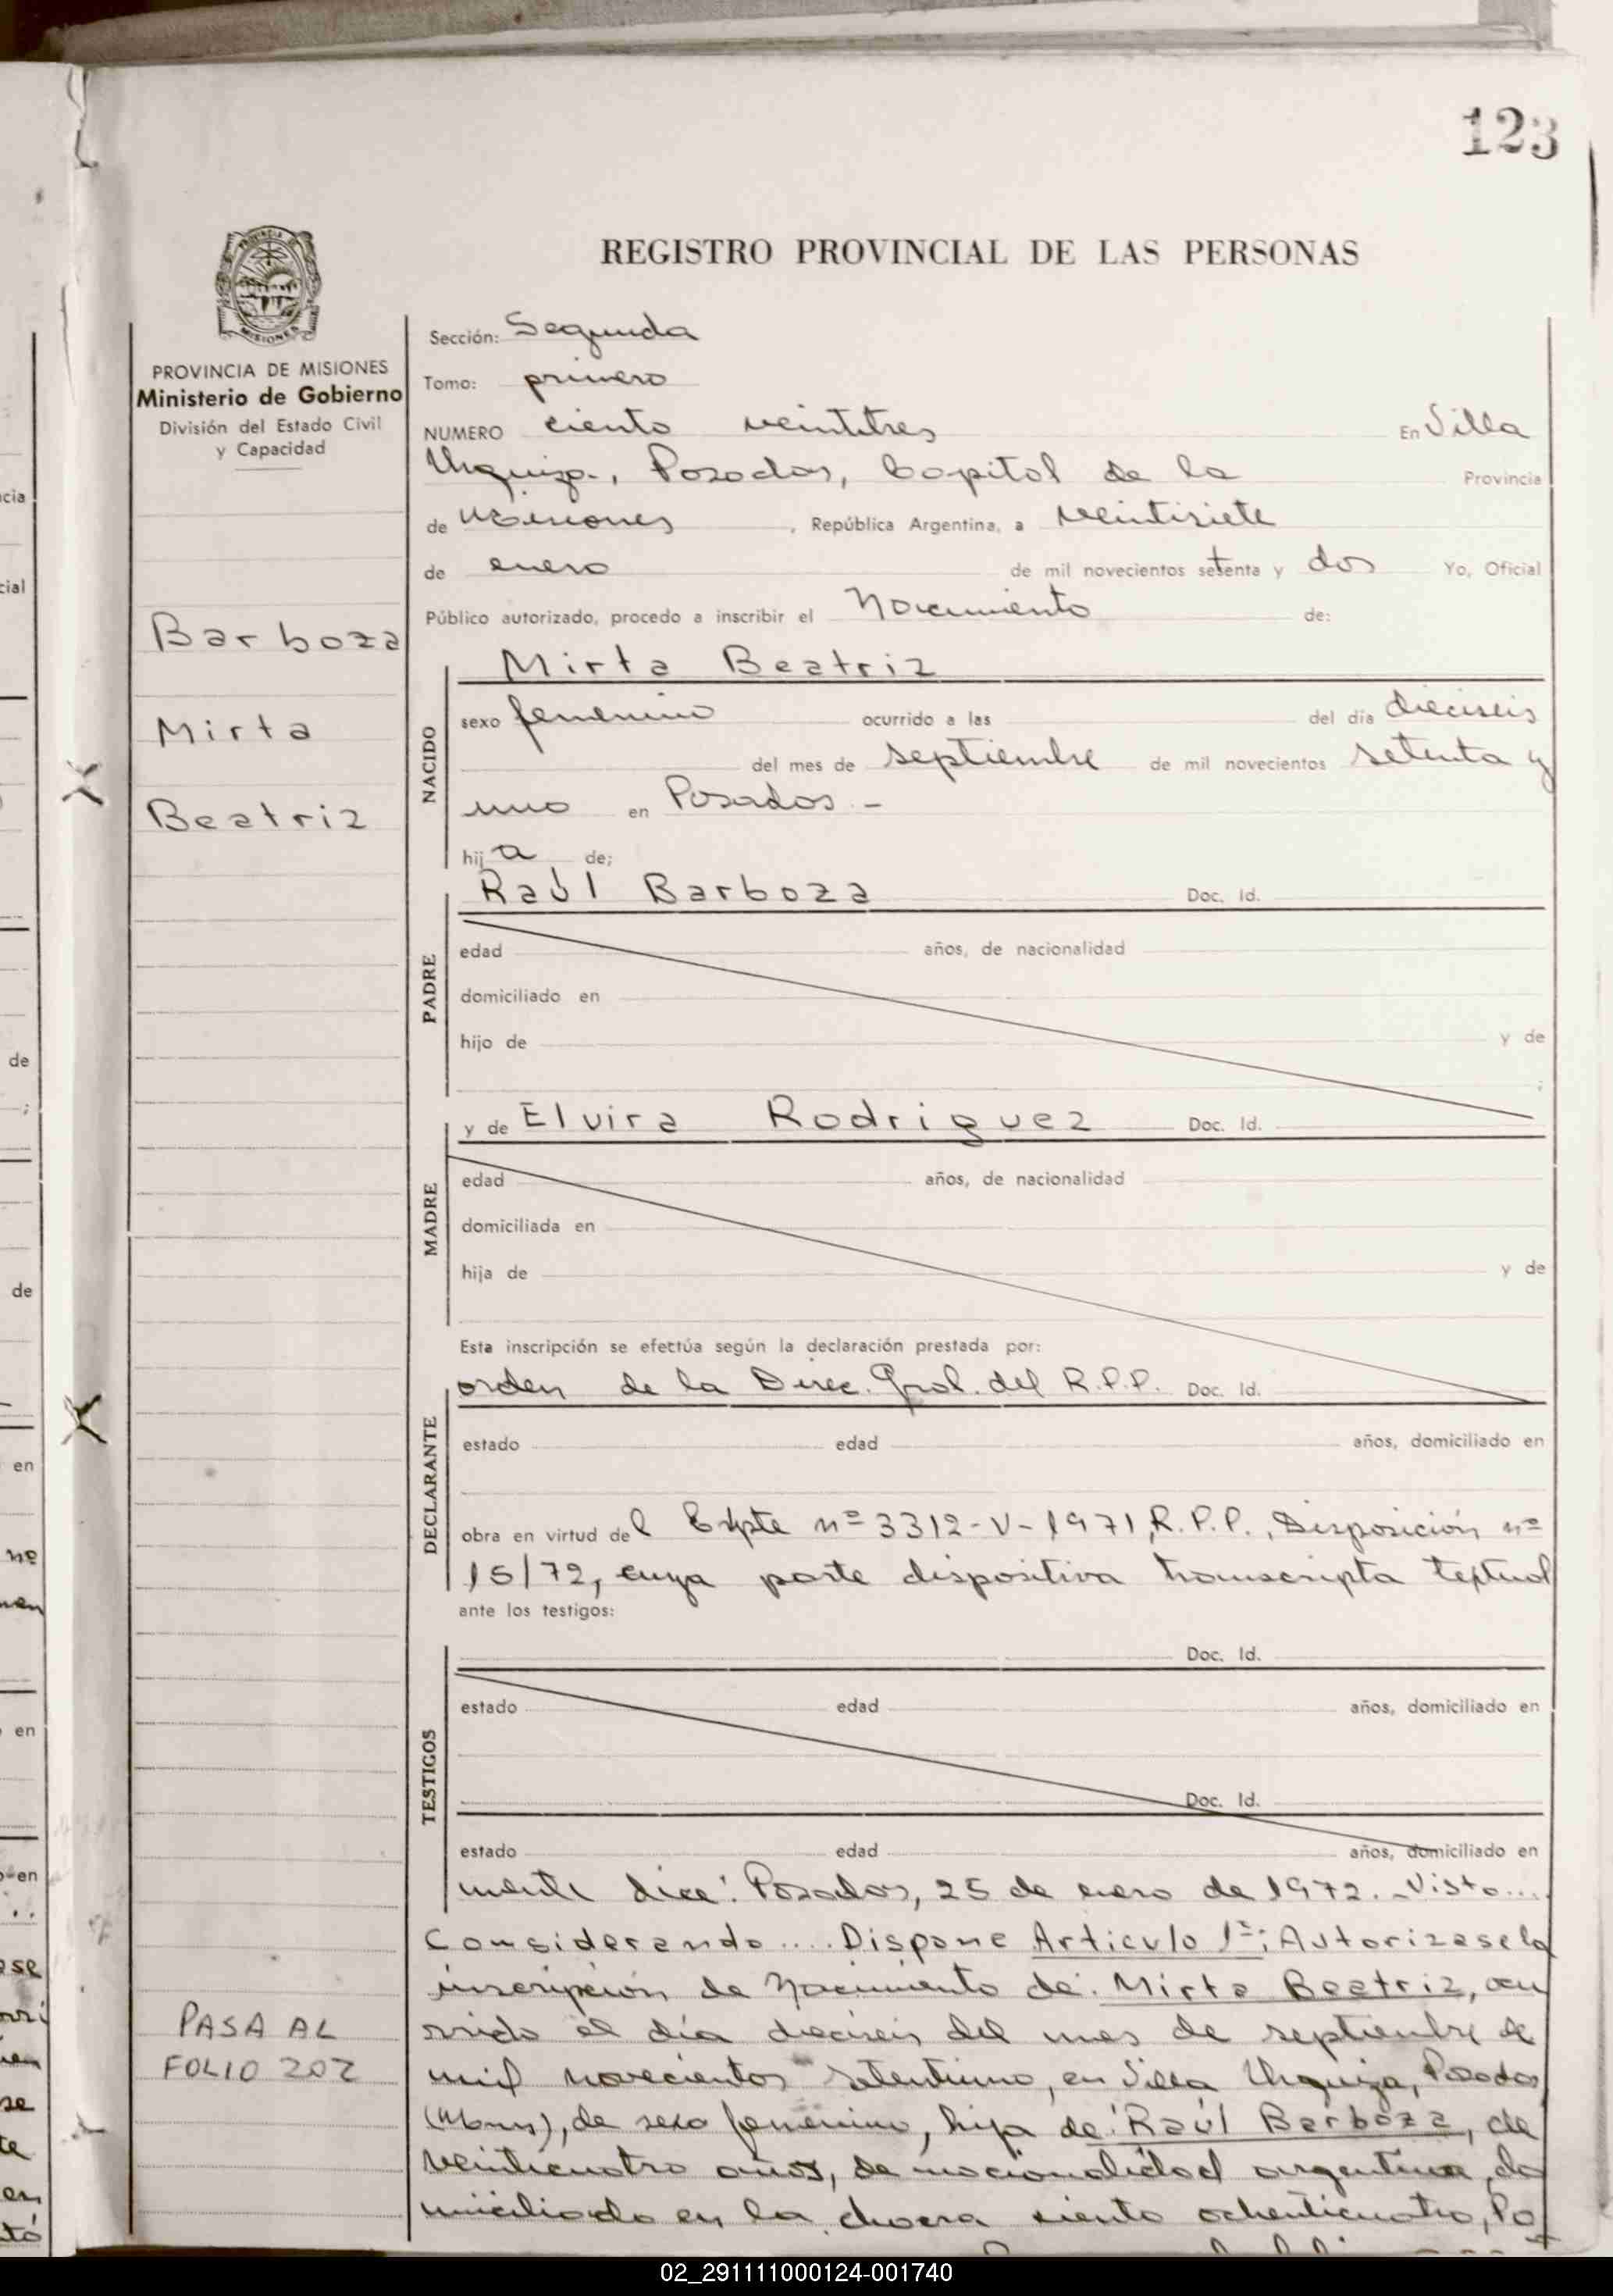 123
REGISTRO PROVINCIAL DE LAS PERSONAS
PROVINCIA DE MISIONES
Ministerio de Gobierno
División del Estado Civil
y Capacidad
Barboza
Mirta
Beatriz
PASA AL
FOLIO 202
Sección: Segunda
Tomo: primero
NUMERO ciento veintitres En Villa
Urquiza, Posadas, Capital de la Provincia
de Misiones, República Argentina, a veintisiete
de enero de mil novecientos setenta y dos Yo, Oficial
Público autorizado, procedo a inscribir el Nacimiento de:
NACIDO
Mirta Beatriz
sexo femenino ocurrido a las del día dieciseis
del mes de septiembre de mil novecientos setenta y
uno en Posadas.-
hija de;
PADRE
Raúl Barboza Doc. Id.
edad años, de nacionalidad
domiciliado en
hijo de y de
;
MADRE
y de Elvira Rodriguez Doc. Id.
edad años, de nacionalidad
domiciliada en
hija de y de
Esta inscripción se efectúa según la declaración prestada por:
DECLARANTE
orden de la Direc. Gral. del R.P.P. Doc. Id.
estado edad años, domiciliado en
obra en virtud del Expte nº 3312-V-1971, R.P.P., Disposición nº
15/72, cuya parte dispositiva transcripta textual
ante los testigos:
TESTIGOS
Doc. Id.
estado edad años, domiciliado en
Doc. Id.
estado edad años, domiciliado en
mente dice: Posadas, 25 de enero de 1972. Visto...
Considerando.... Dispone Articulo 1º: Autorizase la
inscripción de Nacimiento de: Mirta Beatriz, ocu
rrido el día dieciseis del mes de septiembre de
mil novecientos setentiuno, en Villa Urquiza, Posadas
(Mnes), de sexo femenino, hija de: Raúl Barboza, de
veinticuatro años, de nacionalidad argentina, do
miciliado en la chacra ciento ochenticuatro, Po
02_291111000124-001740